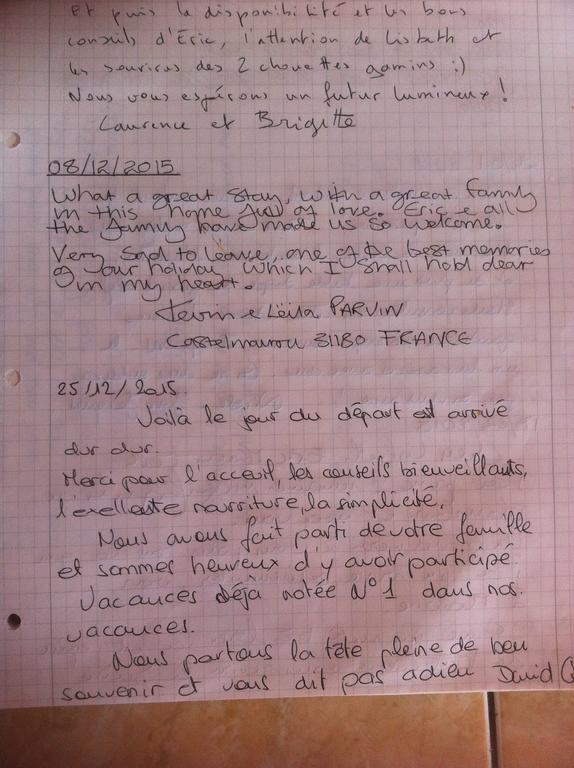 Et puis la disponibilité et les bons
conseils d'Eric, l'attention de Lisbeth et
les sourires des 2 chouettes gamins :)
Nous vous espérons un futur lumineux !
Laurence et Brigitte
08/12/2015
What a great stay, with a great family
in this home full of love. Eric e all
the family have made us so welcome.
Very sad to leave, one of the best memories
of our holiday which I shall hold dear
in my heart.
Kevin e Leïla PARVIN
Castelmaurou 31180 FRANCE
25/12/2015.
Voilà le jour du départ est arrivé
dur dur.
Merci pour l'acceuil, les conseils bienveillants,
l'exellente nourriture, la simplicité.
Nous avons fait parti de votre famille
et sommes heureux d'y avoir participé.
Vacances déjà notée N°1 dans nos
vacances.
Nous partons la tête pleine de beu
souvenir et vous dit pas adieu David